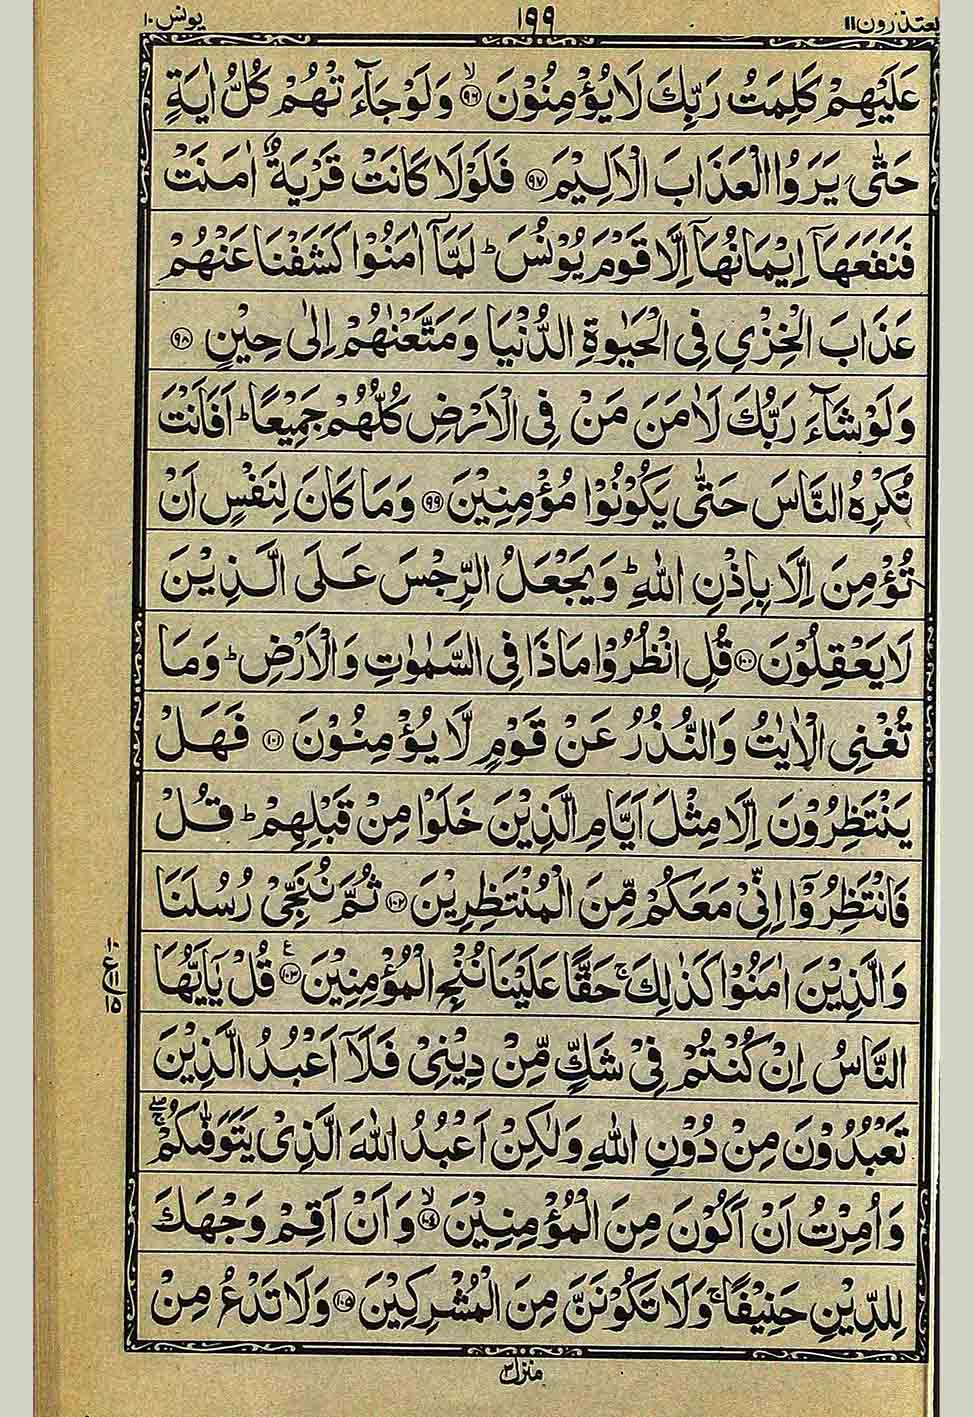 يعتذرون ١١
١٩٩
يونس ١٠
عَلَيْهِمْ كَلِمَتُ رَبِّكَ لَا يُؤْمِنُوْنَ ۙ﴿٩٦﴾ وَلَوْ جَآءَ تْهُمْ كُلُّ اٰيَةٍ
حَتّٰى يَرَوُا الْعَذَابَ الْاَلِيْمَ ﴿٩٧﴾ فَلَوْلَا كَانَتْ قَرْيَةٌ اٰمَنَتْ
فَنَفَعَهَاۤ اِيْمَانُهَاۤ اِلَّا قَوْمَ يُوْنُسَ ؕ لَمَّاۤ اٰمَنُوْا كَشَفْنَا عَنْهُمْ
عَذَابَ الْخِزْيِ فِى الْحَيٰوةِ الدُّنْيَا وَمَتَّعْنٰهُمْ اِلٰى حِيْنٍ ﴿٩٨﴾
وَلَوْ شَآءَ رَبُّكَ لَاٰمَنَ مَنْ فِى الْاَرْضِ كُلُّهُمْ جَمِيْعًا ؕ اَفَاَنْتَ
تُكْرِهُ النَّاسَ حَتّٰى يَكُوْنُوْا مُؤْمِنِيْنَ ﴿٩٩﴾ وَمَا كَانَ لِنَفْسٍ اَنْ
تُؤْمِنَ اِلَّا بِاِذْنِ اللهِ ؕ وَيَجْعَلُ الرِّجْسَ عَلَى الَّذِيْنَ
لَا يَعْقِلُوْنَ ﴿١٠٠﴾ قُلِ انْظُرُوْا مَاذَا فِى السَّمٰوٰتِ وَالْاَرْضِ ؕ وَمَا
تُغْنِى الْاٰيٰتُ وَالنُّذُرُ عَنْ قَوْمٍ لَّا يُؤْمِنُوْنَ ﴿١٠١﴾ فَهَلْ
يَنْتَظِرُوْنَ اِلَّا مِثْلَ اَيَّامِ الَّذِيْنَ خَلَوْا مِنْ قَبْلِهِمْ ؕ قُلْ
فَانْتَظِرُوْۤا اِنِّىْ مَعَكُمْ مِّنَ الْمُنْتَظِرِيْنَ ﴿١٠٢﴾ ثُمَّ نُنَجِّىْ رُسُلَنَا
وَالَّذِيْنَ اٰمَنُوْا كَذٰلِكَ ۚ حَقًّا عَلَيْنَا نُنْجِ الْمُؤْمِنِيْنَ ﴿١٠٣﴾ۧ قُلْ يٰۤاَيُّهَا
١٠
ع ١١
١٥
النَّاسُ اِنْ كُنْتُمْ فِىْ شَكٍّ مِّنْ دِيْنِىْ فَلَاۤ اَعْبُدُ الَّذِيْنَ
تَعْبُدُوْنَ مِنْ دُوْنِ اللهِ وَلٰكِنْ اَعْبُدُ اللهَ الَّذِىْ يَتَوَفّٰىكُمْ ۖۚ
وَاُمِرْتُ اَنْ اَكُوْنَ مِنَ الْمُؤْمِنِيْنَ ۙ﴿١٠٤﴾ وَاَنْ اَقِمْ وَجْهَكَ
لِلدِّيْنِ حَنِيْفًا ۚ وَلَا تَكُوْنَنَّ مِنَ الْمُشْرِكِيْنَ ﴿١٠٥﴾ وَلَا تَدْعُ مِنْ
منزل ٣